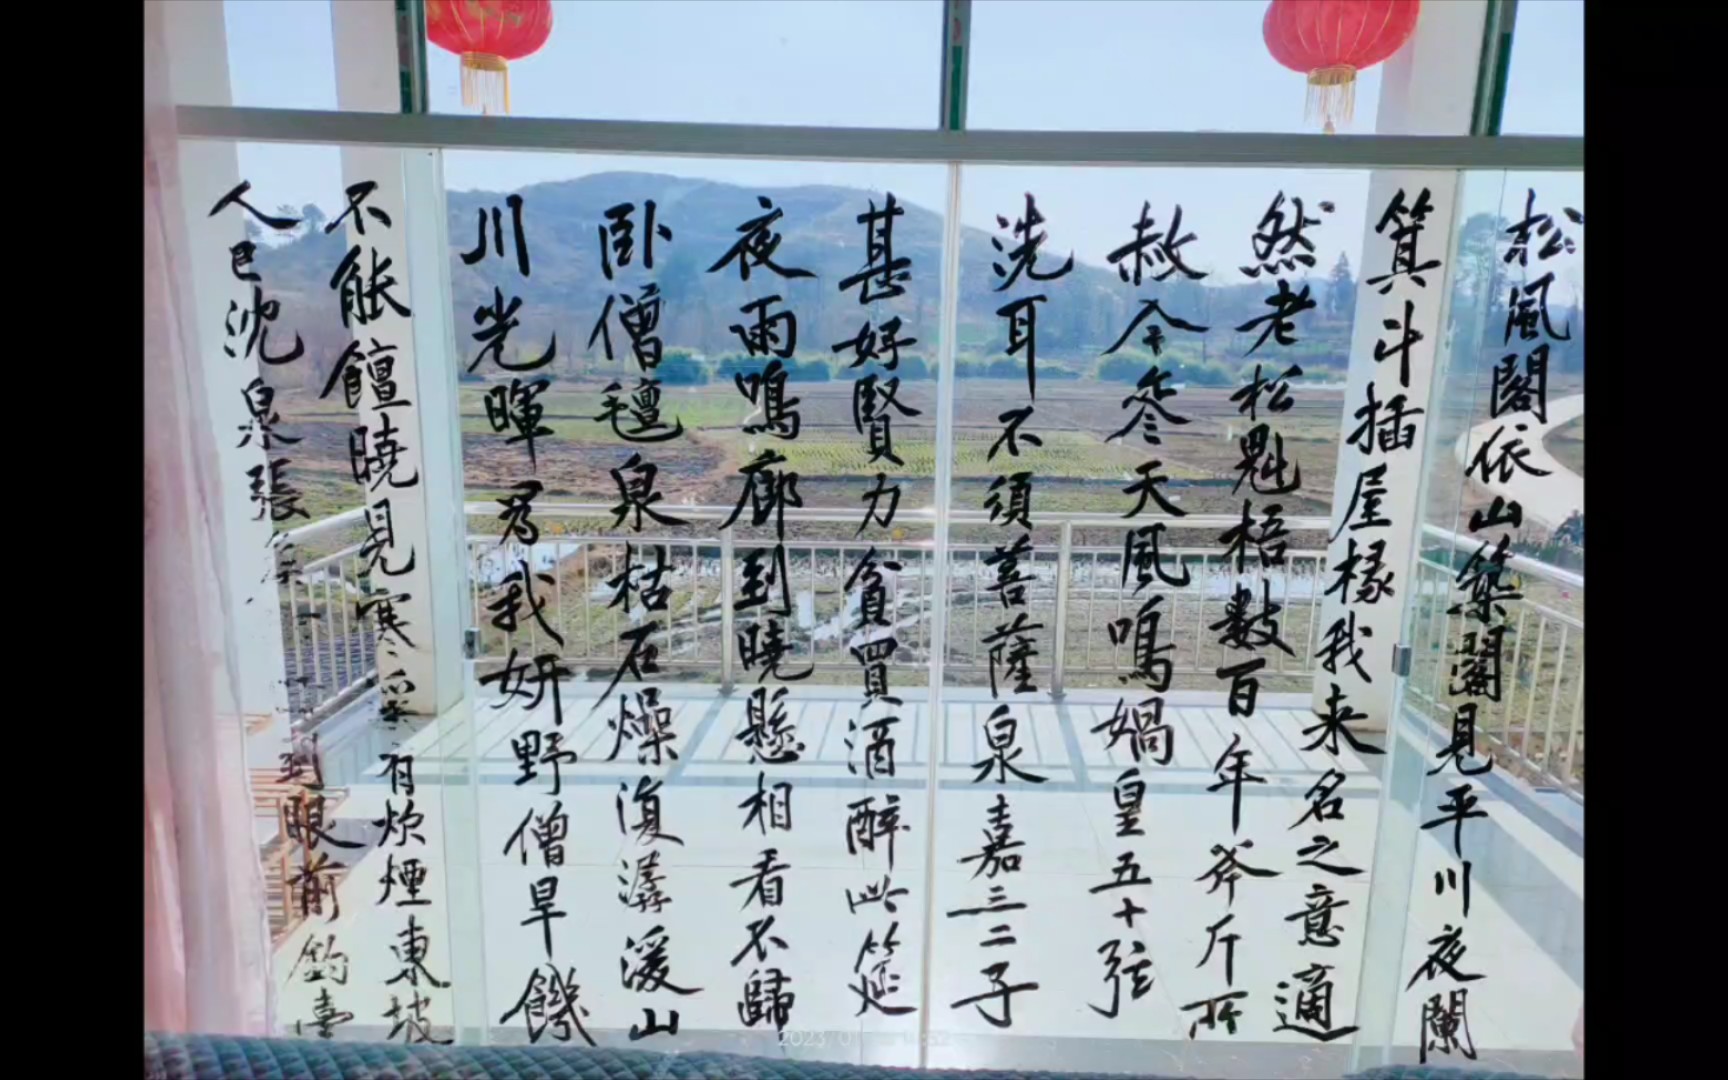 松風閣依山築閣見平川夜闌
箕斗插屋椽我来名之意適
然老松魁梧數百年斧斤所
赦今参天風鳴媧皇五十弦
洗耳不須菩薩泉嘉三二子
甚好賢力貧買酒醉此筵
夜雨鳴廊到曉懸相看不歸
卧僧氊泉枯石燥復潺湲山
川光暉為我妍野僧旱饑
不能饘曉見寒溪有炊煙東坡
人已沈泉張到眼前釣臺
2023/01